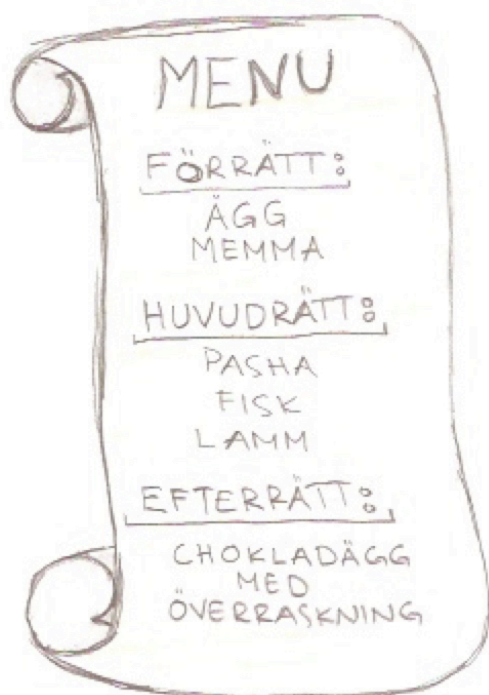 MENU
FÖRRÄTT:
ÄGG
MEMMA
HUVUDRÄTT:
PASHA
FISK
LAMM
EFTERRÄTT:
CHOKLADÄGG
MED
ÖVERRASKNING